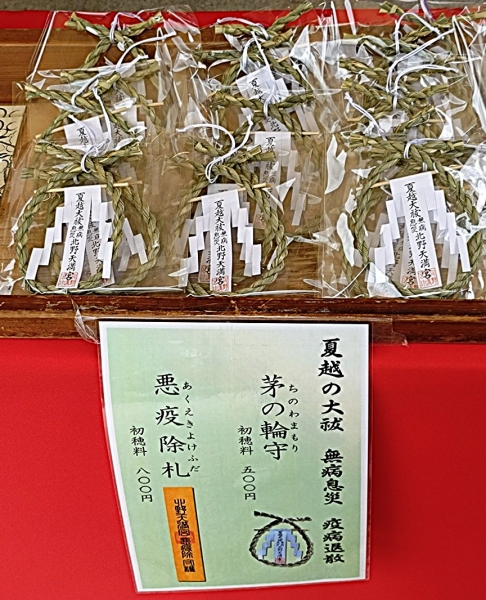 夏越大祓 無病息災 北野天満宮
夏越大祓 無病息災 北野天満宮
夏越大祓 無病息災 北野天満宮
夏越の大祓 無病息災 疫病退散
ちのわまもり
茅の輪守
初穂料 五〇〇円
あくえきよけふだ
悪疫除札
初穂料 八〇〇円